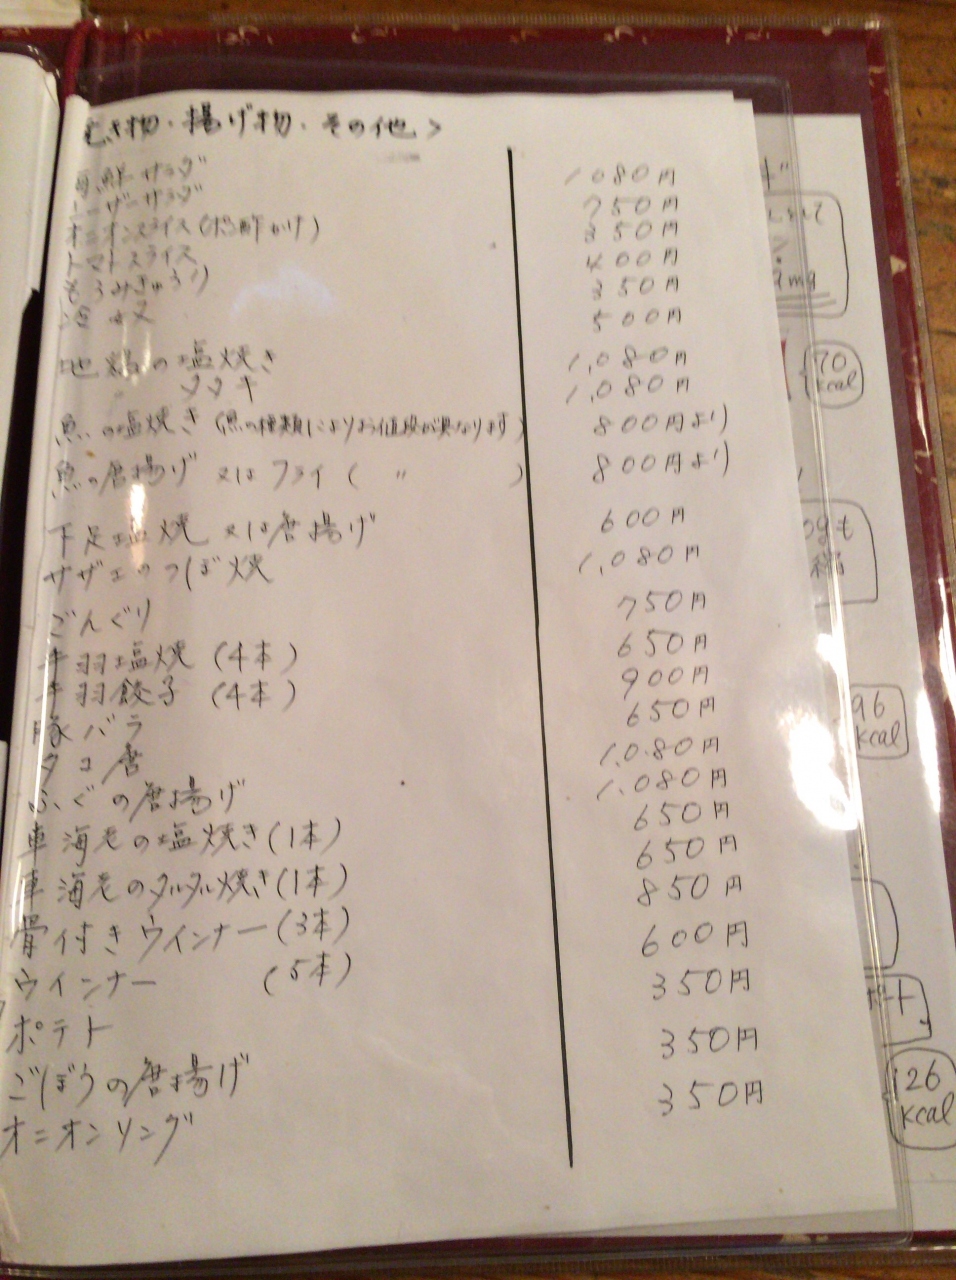 き物・揚げ物・その他>
海鮮サラダ 1,080円
シーザーサラダ 750円
オニオンスライス(ポン酢かけ) 350円
トマトスライス 400円
もろみきゅうり 350円
500円
地鶏の塩焼き 1,080円
〃 タタキ 1,080円
魚の塩焼き(魚の種類によりお値段が異なります) 800円より
魚の唐揚げ 又はフライ( 〃 ) 800円より
下足塩焼 又は唐揚げ 600円
サザエのつぼ焼 1,080円
ごんぐり 750円
手羽塩焼(4本) 650円
手羽餃子(4本) 900円
豚バラ 650円
タコ唐 1,080円
ふぐの唐揚げ 1,080円
車海老の塩焼き(1本) 650円
車海老のタルタル焼き(1本) 650円
骨付きウインナー(3本) 850円
ウインナー (5本) 600円
ポテト 350円
ごぼうの唐揚げ 350円
オニオンリング 350円
70
kcal
96
kcal
126
kcal